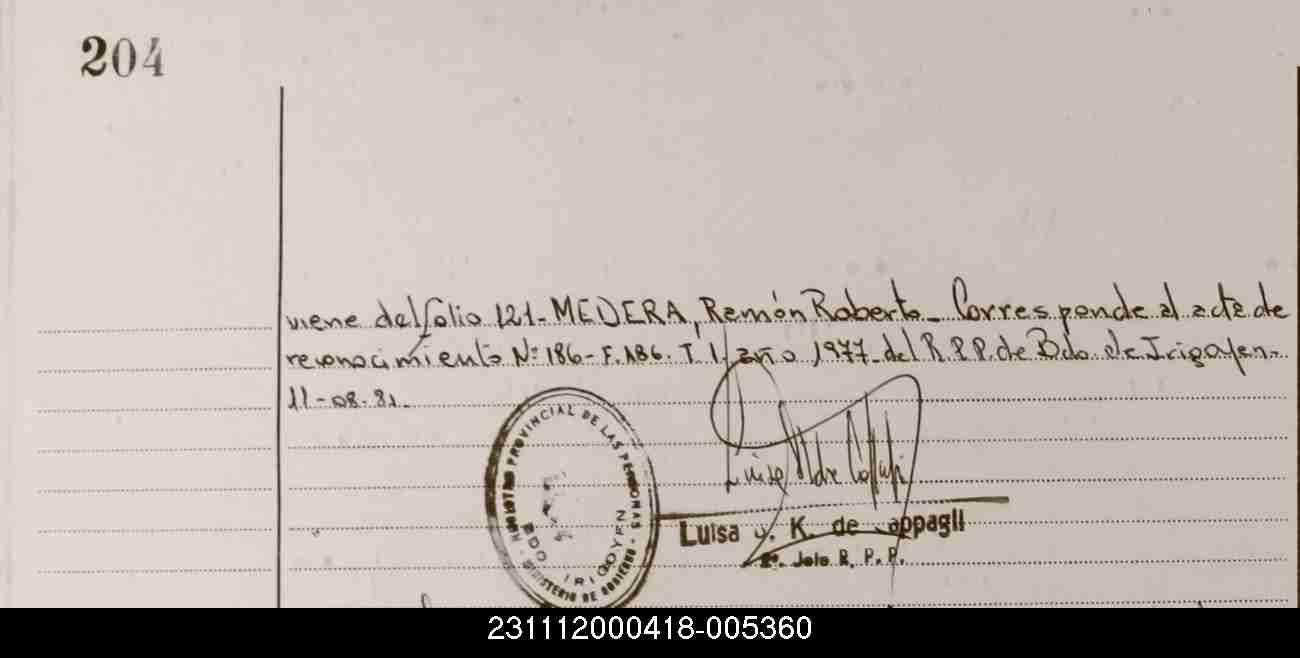 204
viene del folio 121- MEDERA, Ramón Roberto_ Corresponde al acta de
reconocimiento Nº 186- F. 186. T. 1, año 1977_ del R.P.P. de Bdo. de Irigoyen_
11-08-81_
REGISTRO PROVINCIAL DE LAS PERSONAS
BDO IRIGOYEN
MINISTERIO DE GOBIERNO
Luisa K. de
Jefe R. P. P.
231112000418-005360